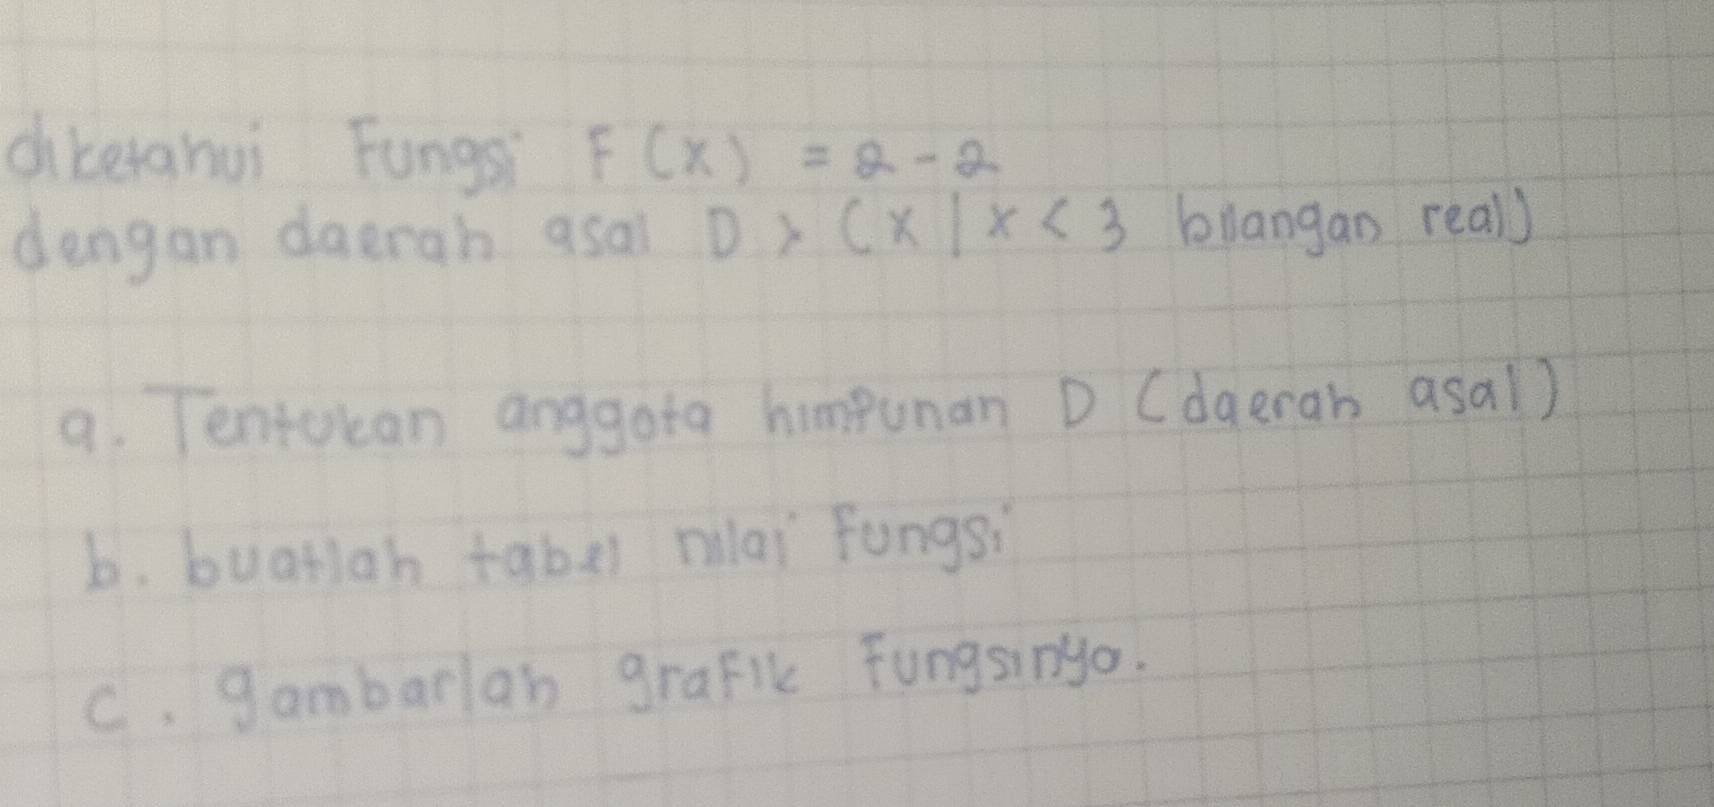 diketahui Fungsi F(x) = 2 - 2
dengan daerah asal D > (x | x < 3 bilangan real)
a. Tentukan anggota himpunan D (daerah asal)
b. buatlah tabel nilai fungsi
c. gambarlah grafik fungsinya.